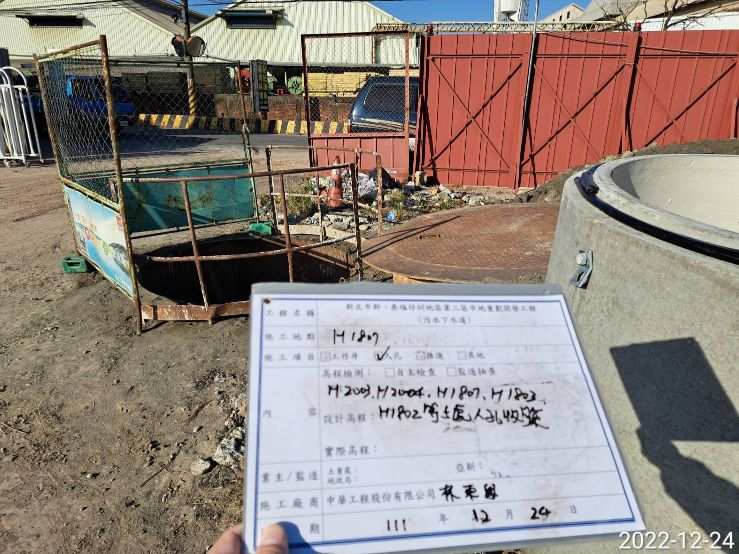 工程名稱 新北市新、泰塭仔圳地區第二區市地重劃開發工程
(污水下水道)
施工地點 H1807
施工項目 □工作井 ☑人孔 □推進 □其他
高程檢測：□自主檢查 □監造抽查
H2003、H2004、H1807、H1803、
內容 設計高程：H1802等5處人孔收築
實際高程：
業主/監造 土重處： 亞新：
地政局：
施工廠商 中華工程股份有限公司
日期 111 年 12 月 24 日
2022-12-24